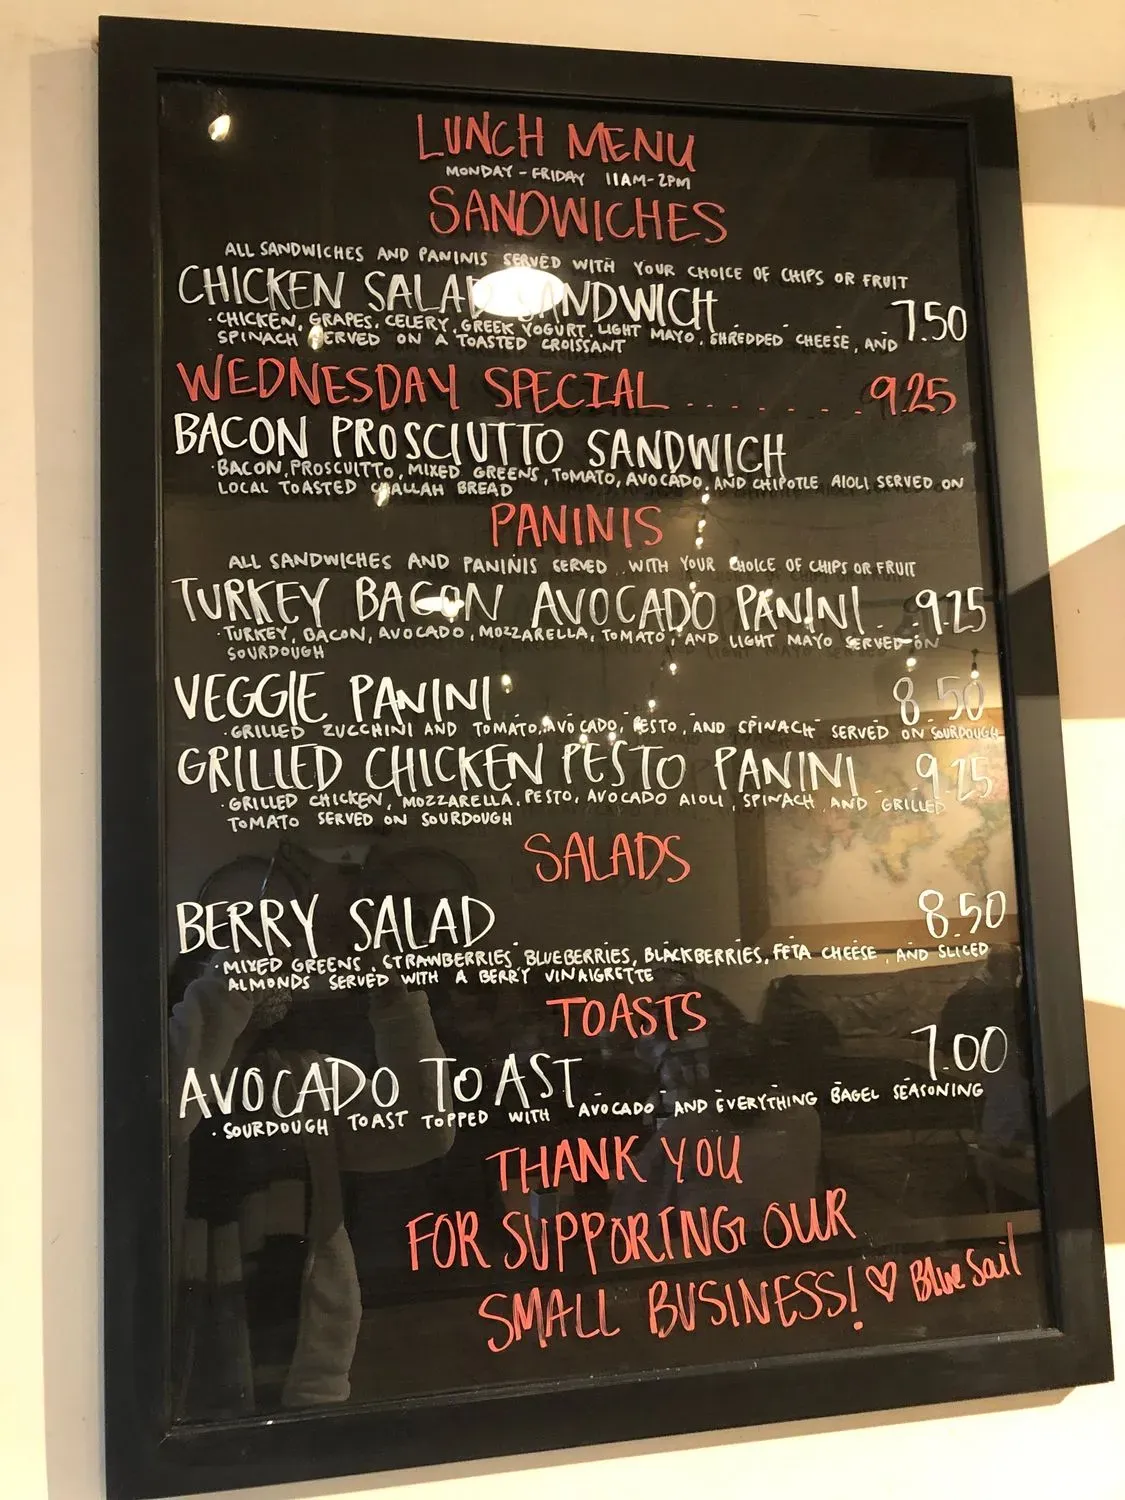 LUNCH MENU
MONDAY - FRIDAY 11AM-2PM
SANDWICHES
ALL SANDWICHES AND PANINIS SERVED WITH YOUR CHOICE OF CHIPS OR FRUIT
CHICKEN SALAD SANDWICH . . . 7.50
· CHICKEN, GRAPES, CELERY, GREEK YOGURT, LIGHT MAYO, SHREDDED CHEESE, AND
SPINACH SERVED ON A TOASTED CROISSANT
WEDNESDAY SPECIAL . . . . . . . 9.25
BACON PROSCIUTTO SANDWICH
· BACON, PROSCUITTO, MIXED GREENS, TOMATO, AVOCADO, AND CHIPOTLE AIOLI SERVED ON
LOCAL TOASTED CHALLAH BREAD
PANINIS
ALL SANDWICHES AND PANINIS SERVED WITH YOUR CHOICE OF CHIPS OR FRUIT
TURKEY BACON AVOCADO PANINI . . 9.25
· TURKEY, BACON, AVOCADO, MOZZARELLA, TOMATO, AND LIGHT MAYO SERVED ON
SOURDOUGH
VEGGIE PANINI 8.50
· GRILLED ZUCCHINI AND TOMATO, AVOCADO, PESTO, AND SPINACH SERVED ON SOURDOUGH
GRILLED CHICKEN PESTO PANINI . . 9.25
· GRILLED CHICKEN, MOZZARELLA, PESTO, AVOCADO AIOLI, SPINACH AND GRILLED
TOMATO SERVED ON SOURDOUGH
SALADS
BERRY SALAD 8.50
· MIXED GREENS, STRAWBERRIES, BLUEBERRIES, BLACKBERRIES, FETA CHEESE, AND SLICED
ALMONDS SERVED WITH A BERRY VINAIGRETTE
TOASTS
AVOCADO TOAST 7.00
· SOURDOUGH TOAST TOPPED WITH AVOCADO AND EVERYTHING BAGEL SEASONING
THANK YOU
FOR SUPPORING OUR
SMALL BUSINESS! ♡ Blue Sail